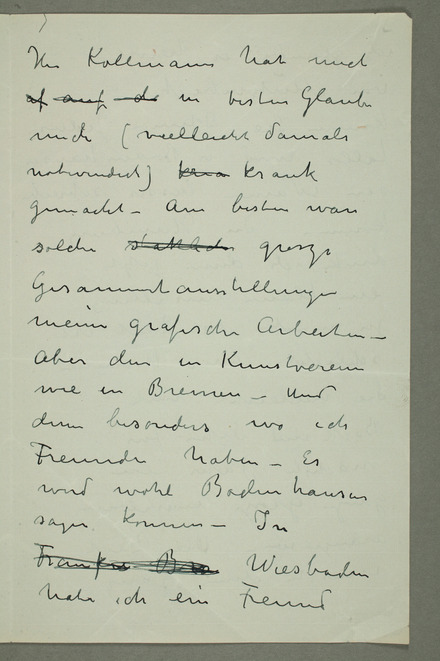 Herr Kollmann hat mich
auf in besten Glaube
mich (vielleicht damals
notwendich) krank
gemacht – Am besten war
solche grosze
Gesammtausstellungen
meine grafische Arbeiten –
Aber dan in Kunstverein
wie in Bremen – Und
dann besonders wo ich
Freunde haben – Es
wird wohl Bodenhausen
sagen können – In
Wiesbaden
habe ich ein Freund